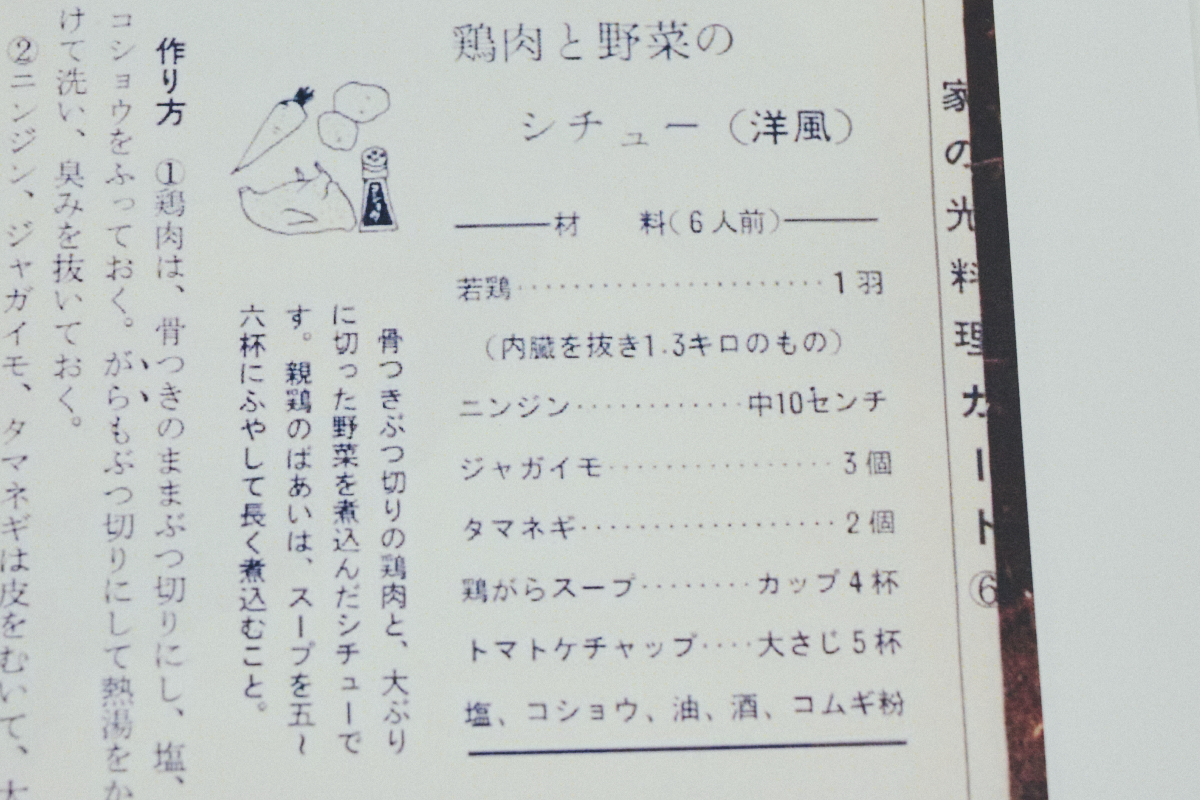 家の光料理カード⑥
鶏肉と野菜の
シチュー(洋風)
材 料(6人前)
若鶏‥‥‥‥‥‥‥‥‥‥‥1羽
(内臓を抜き1.3キロのもの)
ニンジン‥‥‥‥‥‥中10センチ
ジャガイモ‥‥‥‥‥‥‥‥3個
タマネギ‥‥‥‥‥‥‥‥‥2個
鶏がらスープ‥‥‥‥カップ4杯
トマトケチャップ‥‥大さじ5杯
塩、コショウ、油、酒、コムギ粉
骨つきぶつ切りの鶏肉と、大ぶり
に切った野菜を煮込んだシチューで
す。親鶏のばあいは、スープを五〜
六杯にふやして長く煮込むこと。
作り方 ①鶏肉は、骨つきのままぶつ切りにし、塩、
コショウをふっておく。がらもぶつ切りにして熱湯をか
けて洗い、臭みを抜いておく。
②ニンジン、ジャガイモ、タマネギは皮をむいて、大